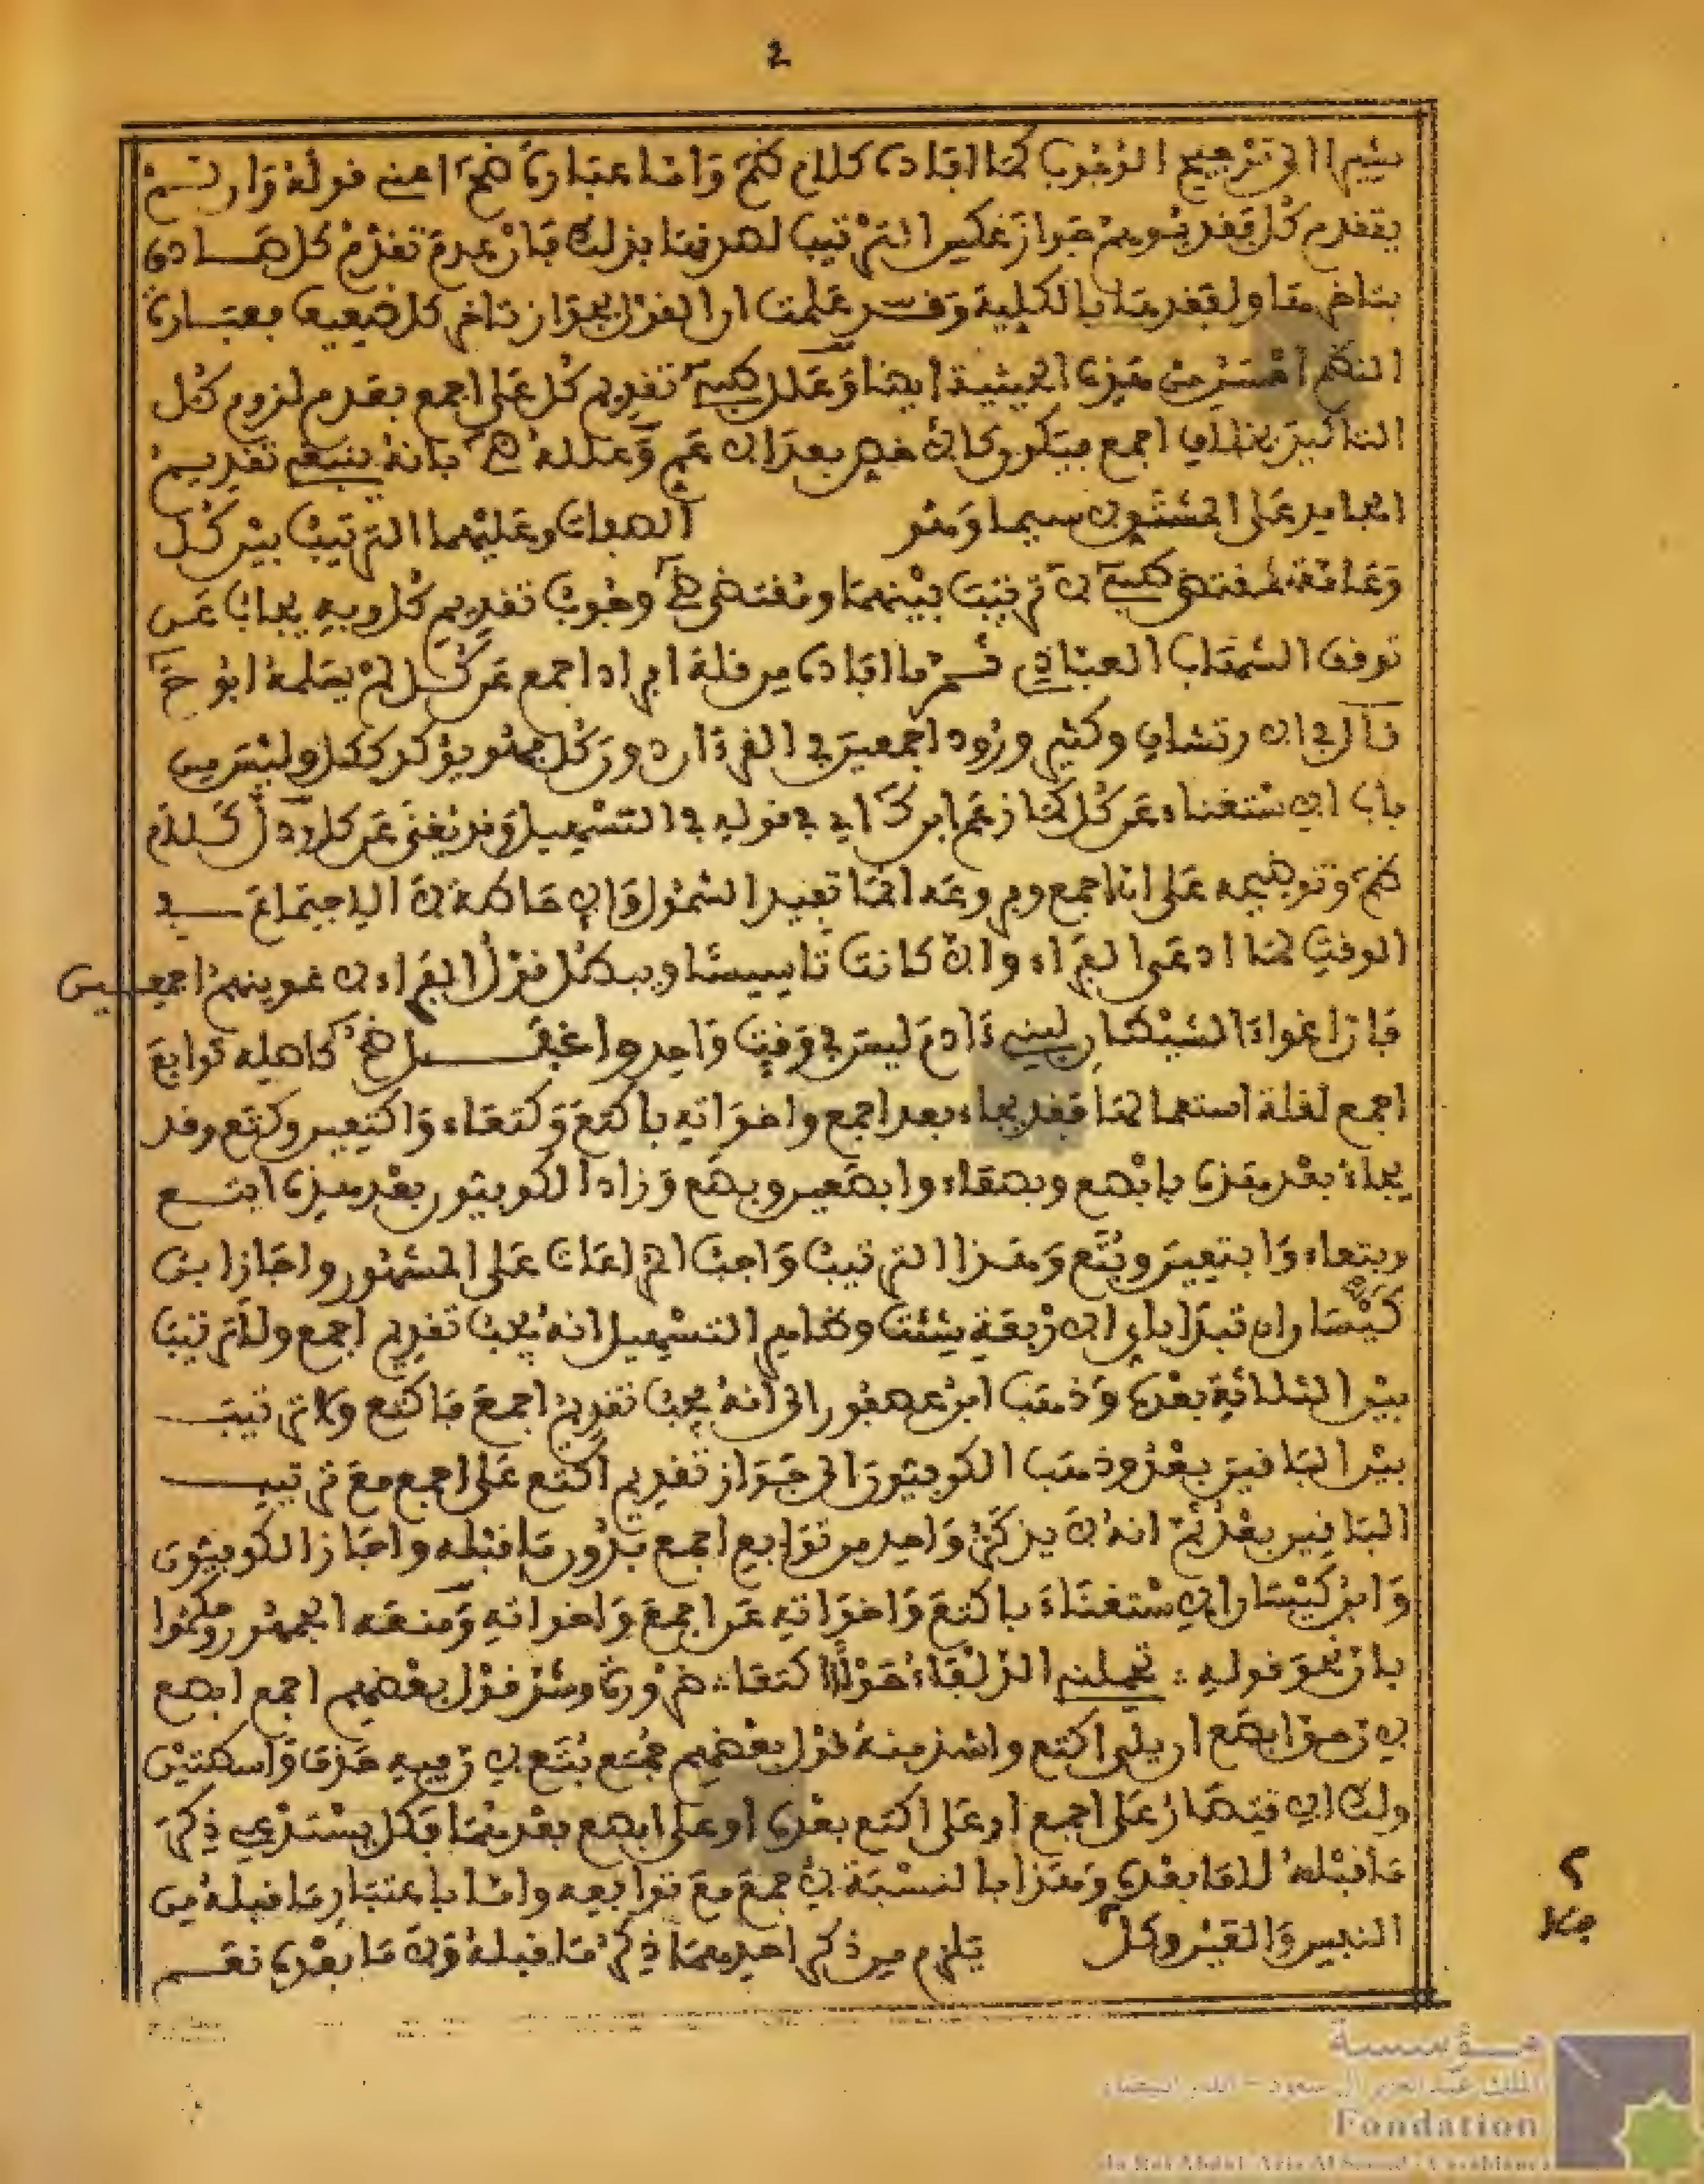 2
يشير الى ترجيح الوجوب كما افاده كلام ضح واما عبارة ضح اعني قوله وان لم
يتقدم كل فقد يتوهم جواز عكس الترتيب لصدقها بذلك فان عدم تقدم كل صادق
بتاخرها ولفقدها بالكلية وقد علمت ان القول بجواز تاخر كل ضعيف فعبارة
النظم احسن من هذه الحيثية ايضا وعلل تقديم كل على اجمع بعدم لزوم كل
التاكيد بخلاف اجمع بانه ينبغي تقديم
الجامد على المشتق لا سيما وهو الصفات وعليهما الترتيب بين كل
وعامة مقتضى لا ترتيب بينهما ومقتضى وجوب تقديم كل وبه يجاب عن
توقف الشهاب العبادي ثم ما افاده من قلة افراد اجمع عن كل لم يسلمه ابو
قال في الارتشاف وكثير ورود اجمعين في القرءان دون كل فهو يؤكد ككل وليس من
باب الاستغناء عن كل كما زعم ابن في قوله في التسهيل وقد يغنى عن كل ودل كلام
ضح وتوضيحه على ان اجمع وفروعه انما تفيد الشمول والاحاطة لا الاجتماع في
الوقت كما ادعى الفراء والا كانت تاسيسا ويبطل قول الفراء لاغوينهم اجمعين
فان اغواء الشيطان لبني ءادم ليس في وقت واحد واغفل ضح كاصله توابع
اجمع لقلة استعمالها فقد يجاء بعد اجمع واخواته باكتع وكتعاء واكتعين وكتع وقد
يجاء بعد هذه بابصع وبصعاء وابصعين وبصع وزاد الكوفيون بعد هذه ابتع
وبتعاء وابتعين وبتع وهذا الترتيب واجب المراعات على المشهور واجاز ابن
كيسان ان تبدا باي الاربعة شئت وظاهر التسهيل انه يجب تقديم اجمع ولا ترتيب
بين الثلاثة بعده وذهب ابن عصفور الى انه يجب تقديم اجمع فاكتع ولا ترتيب
بين الباقين بعد وذهب الكوفيون الى جواز تقديم اكتع على اجمع مع ترتيب
الباقين بعد ثم انه لا يذكر واحد من توابع اجمع بدون ما قبله واجاز الكوفيون
وابن كيسان الاستغناء باكتع واخواته عن اجمع واخواته ومنعه الجمهور وحكموا
بان نحو قوله ∴ تحملني الذلفاء حولا اكتعا ∴ ضرورة وشذ قول بعضهم اجمع ابصع
لان حق ابصع ان يلي اكتع واشذ منه قول بعضهم جمع بتع لان فيه حذف واسطتين
ولك الاقتصار على اجمع او على اكتع بعده او على ابصع بعدهما فكل يستدعي ذكر
ما قبله لا ما بعده وهذا بالنسبة لاجمع مع توابعه واما باعتبار ما قبله من
النفس والعين وكل يلزم من ذكر احدهما ذكر ما قبله ولا ما بعده نعم
مؤسسة
الملك عبد العزيز آل سعود - الدار البيضاء
Fondation
du Roi Abdul-Aziz Al Saoud - Casablanca